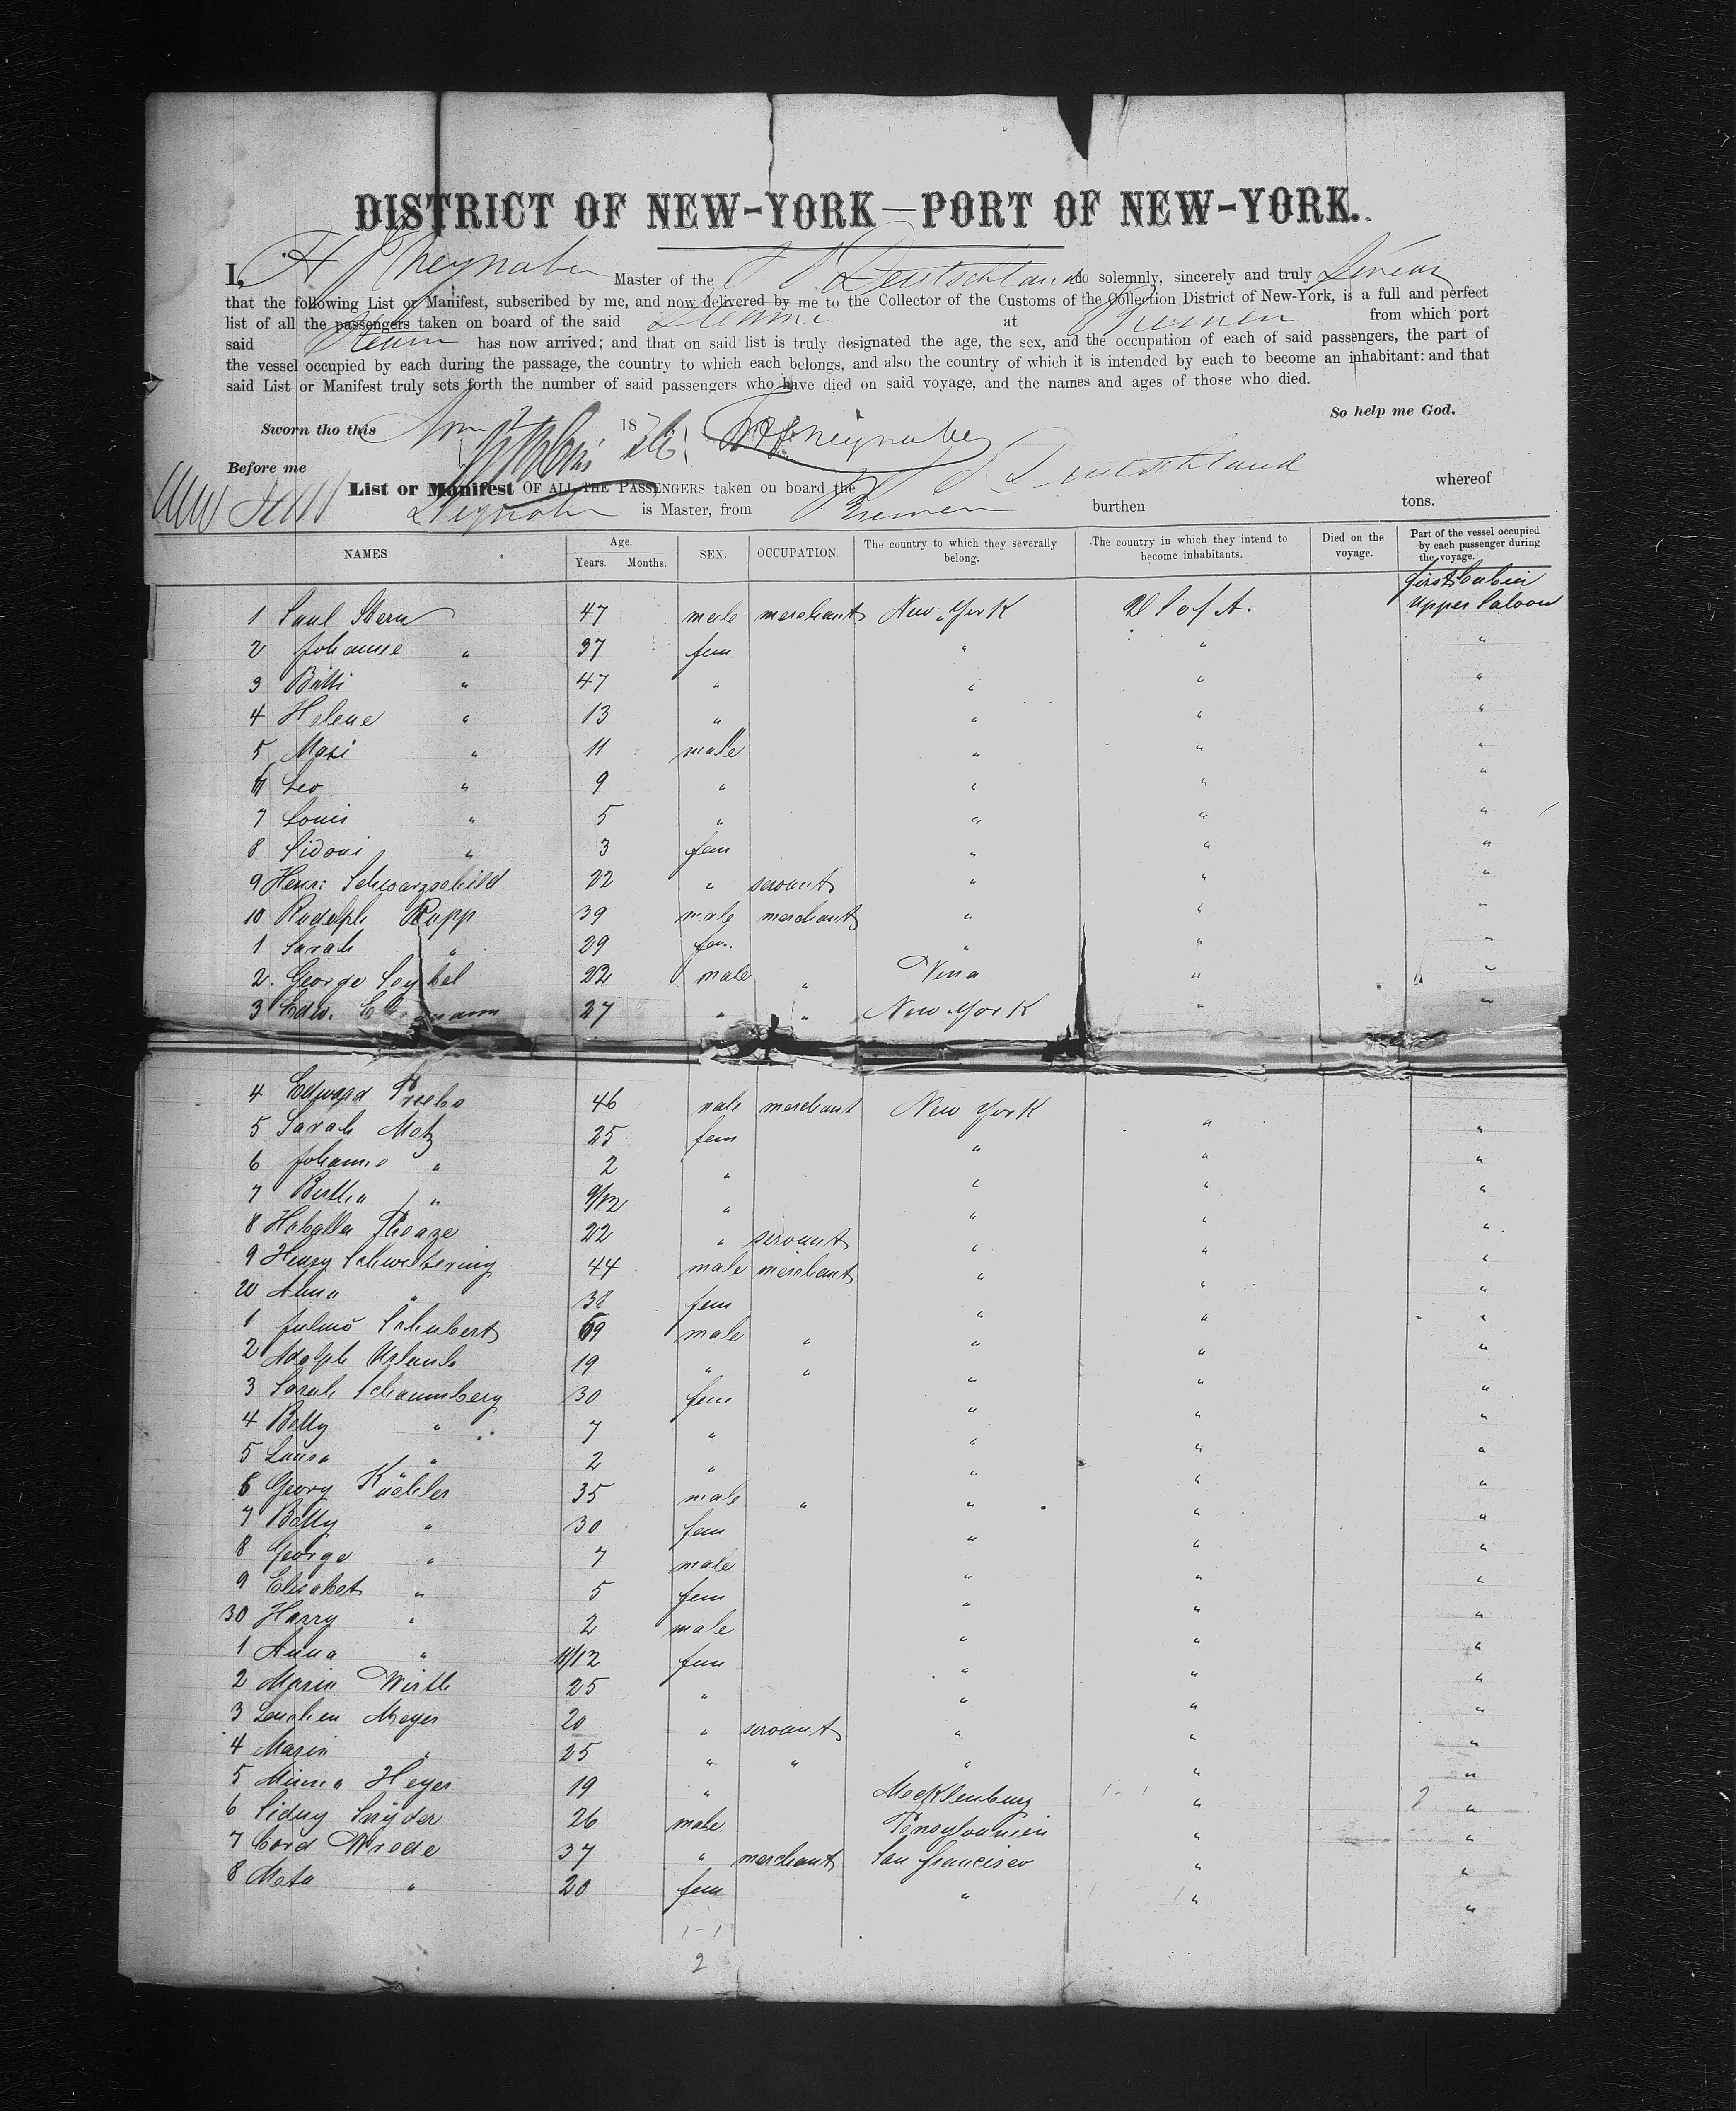 DISTRICT OF NEW-YORK—PORT OF NEW-YORK.
I, H Master of the S S Deutschland do solemnly, sincerely and truly Swear
that the following List or Manifest, subscribed by me, and now delivered by me to the Collector of the Customs of the Collection District of New-York, is a full and perfect
list of all the passengers taken on board of the said Steamer at Bremen from which port
said Steam has now arrived; and that on said list is truly designated the age, the sex, and the occupation of each of said passengers, the part of
the vessel occupied by each during the passage, the country to which each belongs, and also the country of which it is intended by each to become an inhabitant: and that
said List or Manifest truly sets forth the number of said passengers who have died on said voyage, and the names and ages of those who died.
So help me God.
Sworn tho this 18
Before me
List or Manifest OF ALL THE PASSENGERS taken on board the S S Deutschland whereof
is Master, from Bremen burthen tons.
NAMES Age. Years. Months. SEX. OCCUPATION The country to which they severally belong. The country in which they intend to become inhabitants. Died on the voyage. Part of the vessel occupied by each passenger during the voyage.
first Cabin
1 Saul Stern 47 male merchant New York U S of A. Upper Saloon
2 Johanne " 37 fem " " "
3 " 47 " " " "
4 Helene " 13 " " " "
5 Maxi " 11 male " " "
6 Leo " 9 " " " "
7 Louis " 5 " " " "
8 Sidoni " 3 fem " " "
9 Henri Schwarzschild 22 " servant " " "
10 Rudolph Rupp 39 male merchant " " "
1 Sarah " 29 fem. " " "
2. George 22 male " " "
3 Edw. 27 " " New York " "
4 Edward 46 male merchant New York " "
5 Sarah Metz 25 fem " " "
6 Johanne " 2 " " " "
7 Bertha " 9/12 " " " "
8 22 " servant " " "
9 Henry Schwetering 44 male merchant " " "
20 Anna " 38 fem " " "
1 Schubert male " " " "
2 Adolph 19 " " " " "
3 Sarah Schaumberg 30 fem " " "
4 Betty " 7 " " " "
5 Laura " 2 " " " "
6 Georg Küchler 35 male " " " "
7 Betty " 30 fem " " "
8 George " 7 male " " "
9 Elisabet " 5 fem " " "
30 Harry " 2 male " " "
1 Anna " 11/12 fem " " "
2 Marie Wirth 25 " " " "
3 Lenchen Meyer 20 " servant " " "
4 Marie " 25 " " " " "
5 Minna Heyer 19 " Mecklenburg " "
6 Sidny Snÿder 26 male Pensylvanien " "
7 Cord Wrede 37 " merchant San Francisco " "
8 Meta " 20 fem " " "
1-1
2